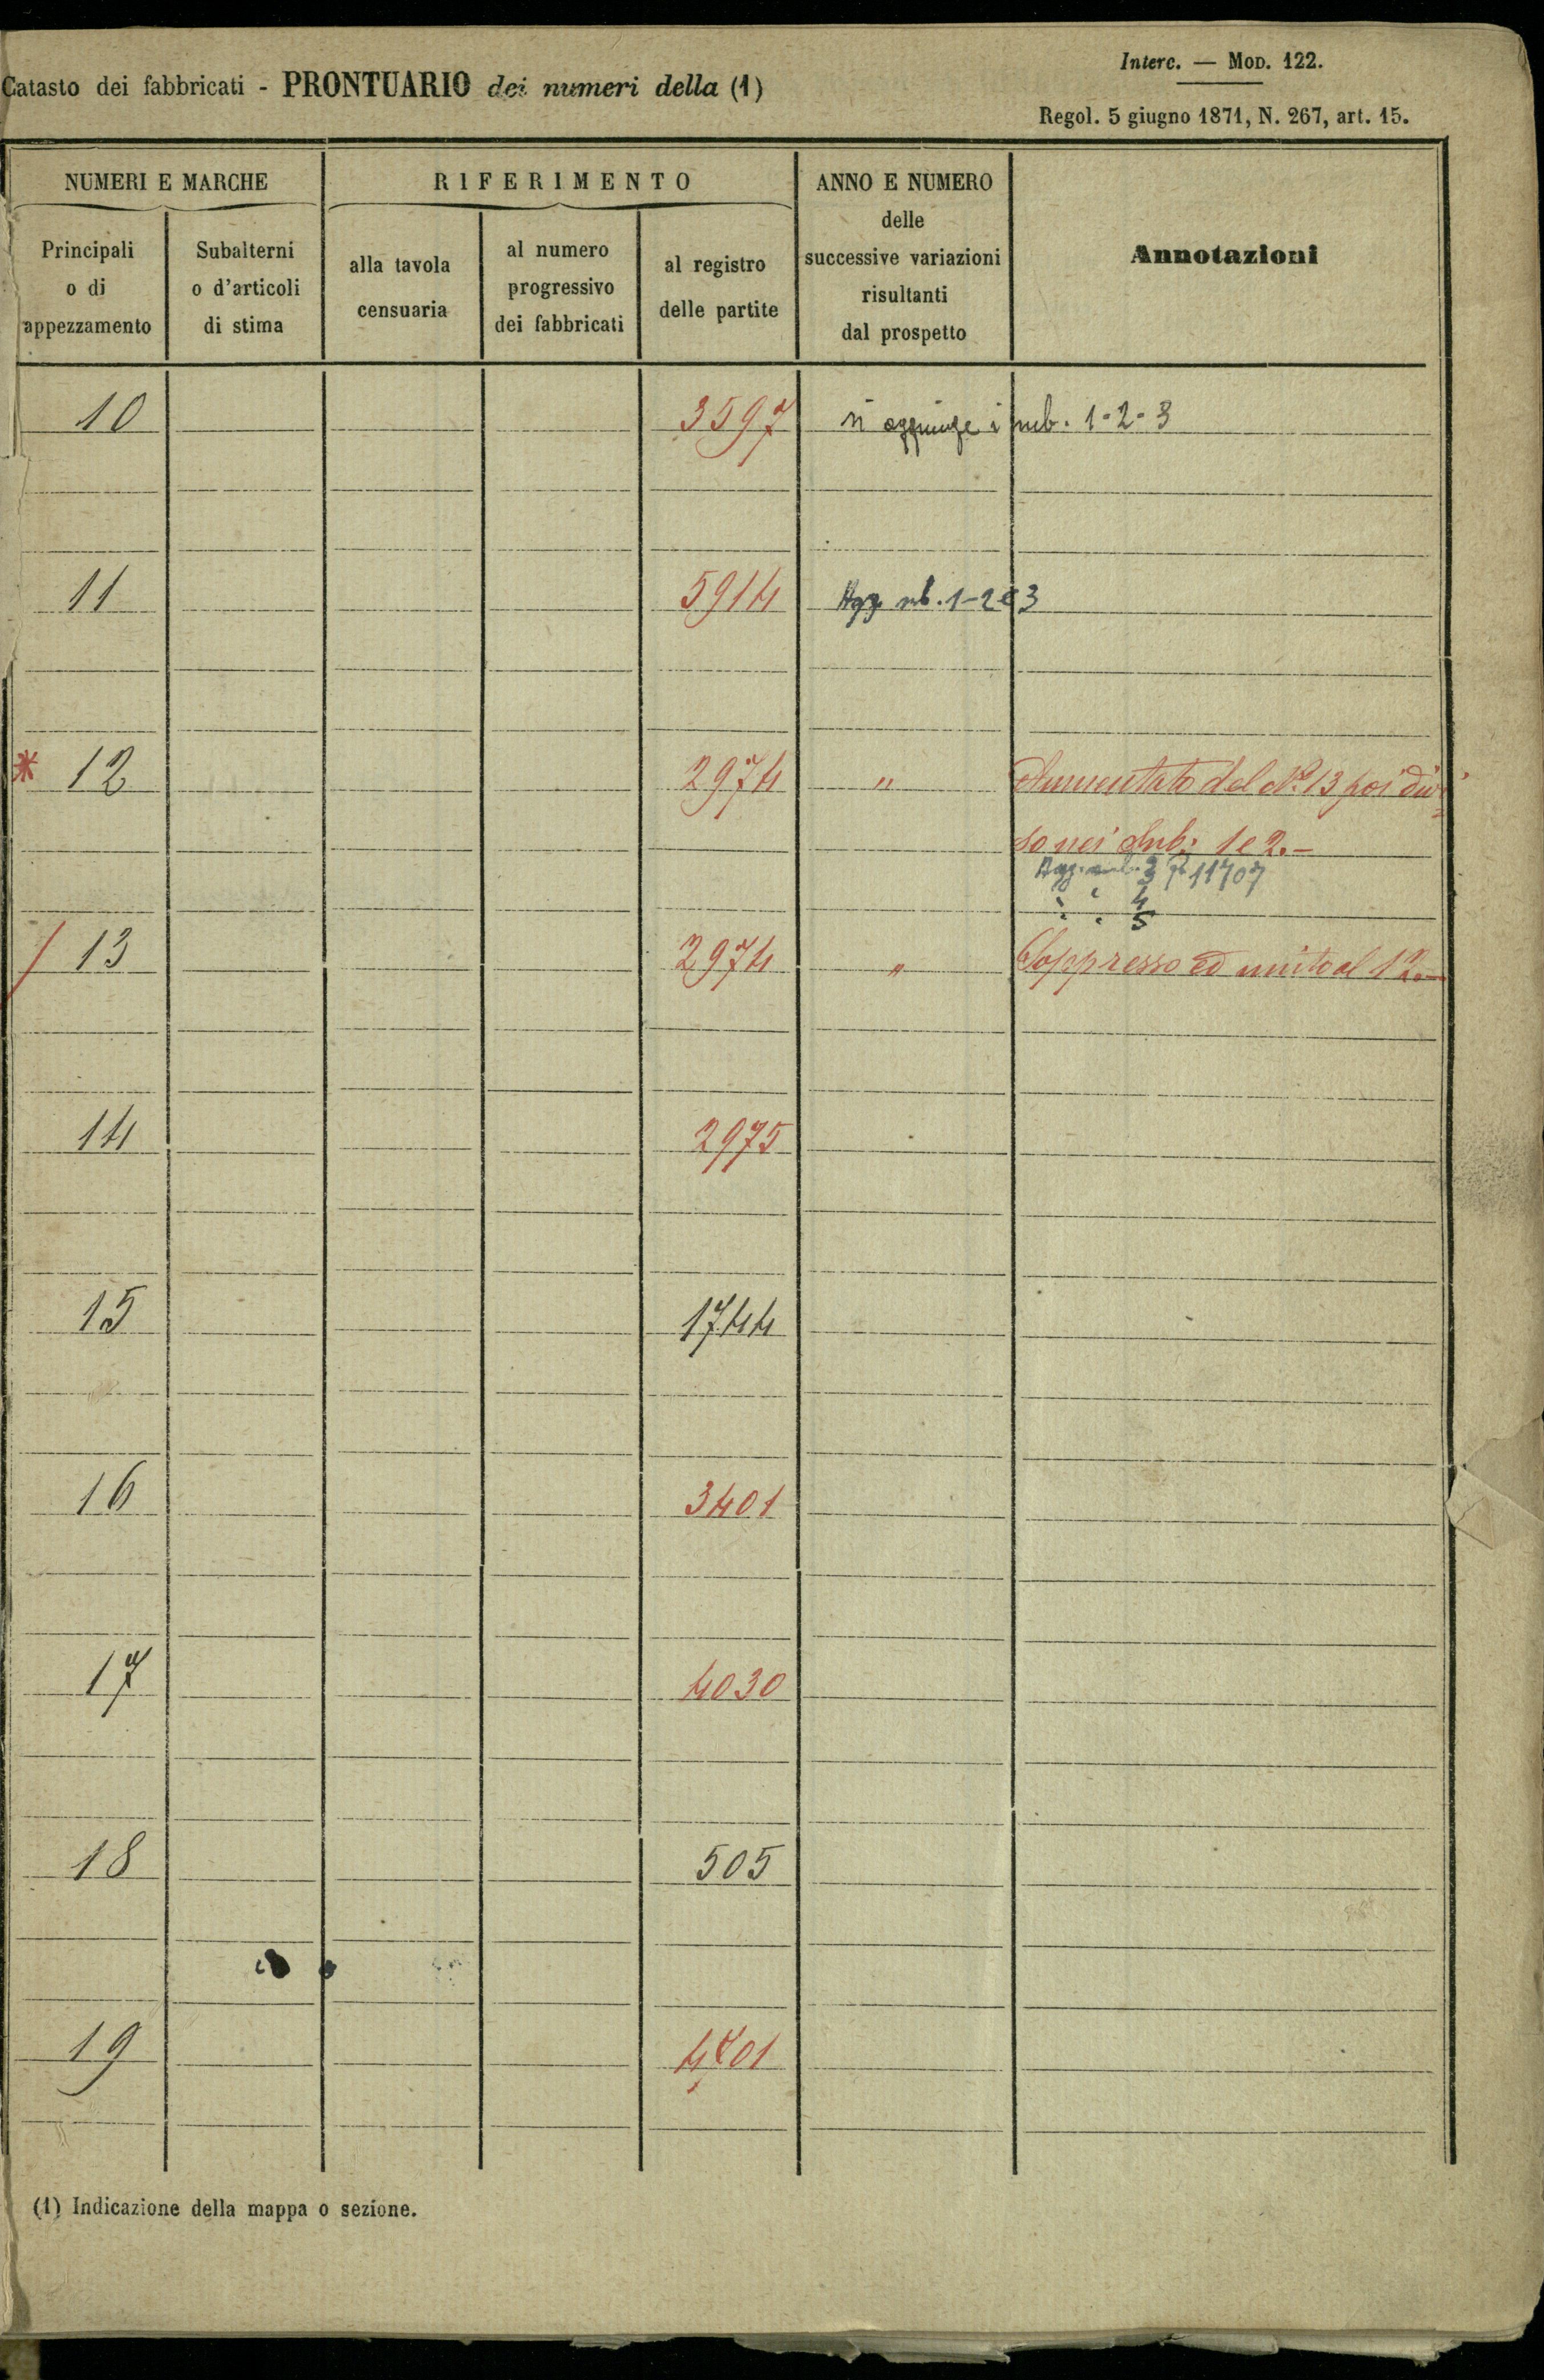 Catasto dei fabbricati - PRONTUARIO dei numeri della (1)
Interc. — MOD. 122.
Regol. 5 giugno 1871, N. 267, art. 15.
NUMERI E MARCHE
RIFERIMENTO
ANNO E NUMERO
delle
successive variazioni
risultanti
dal prospetto
Annotazioni
Principali
o di
appezzamento
Subalterni
o d'articoli
di stima
alla tavola
censuaria
al numero
progressivo
dei fabbricati
al registro
delle partite
10 3597 si aggiunge i sub. 1-2-3
11 5914 Agg. sub. 1-2 e 3
* 12 2974 " Aumentato del No. 13 poi divi
so nei Sub: 1 e 2.-
Agg. sub. 3 11707
" " 4
5
/ 13 2974 " Soppresso ed unito al 12.-
14 2975
15 1744
16 3401
17 4030
18 505
19
(1) Indicazione della mappa o sezione.